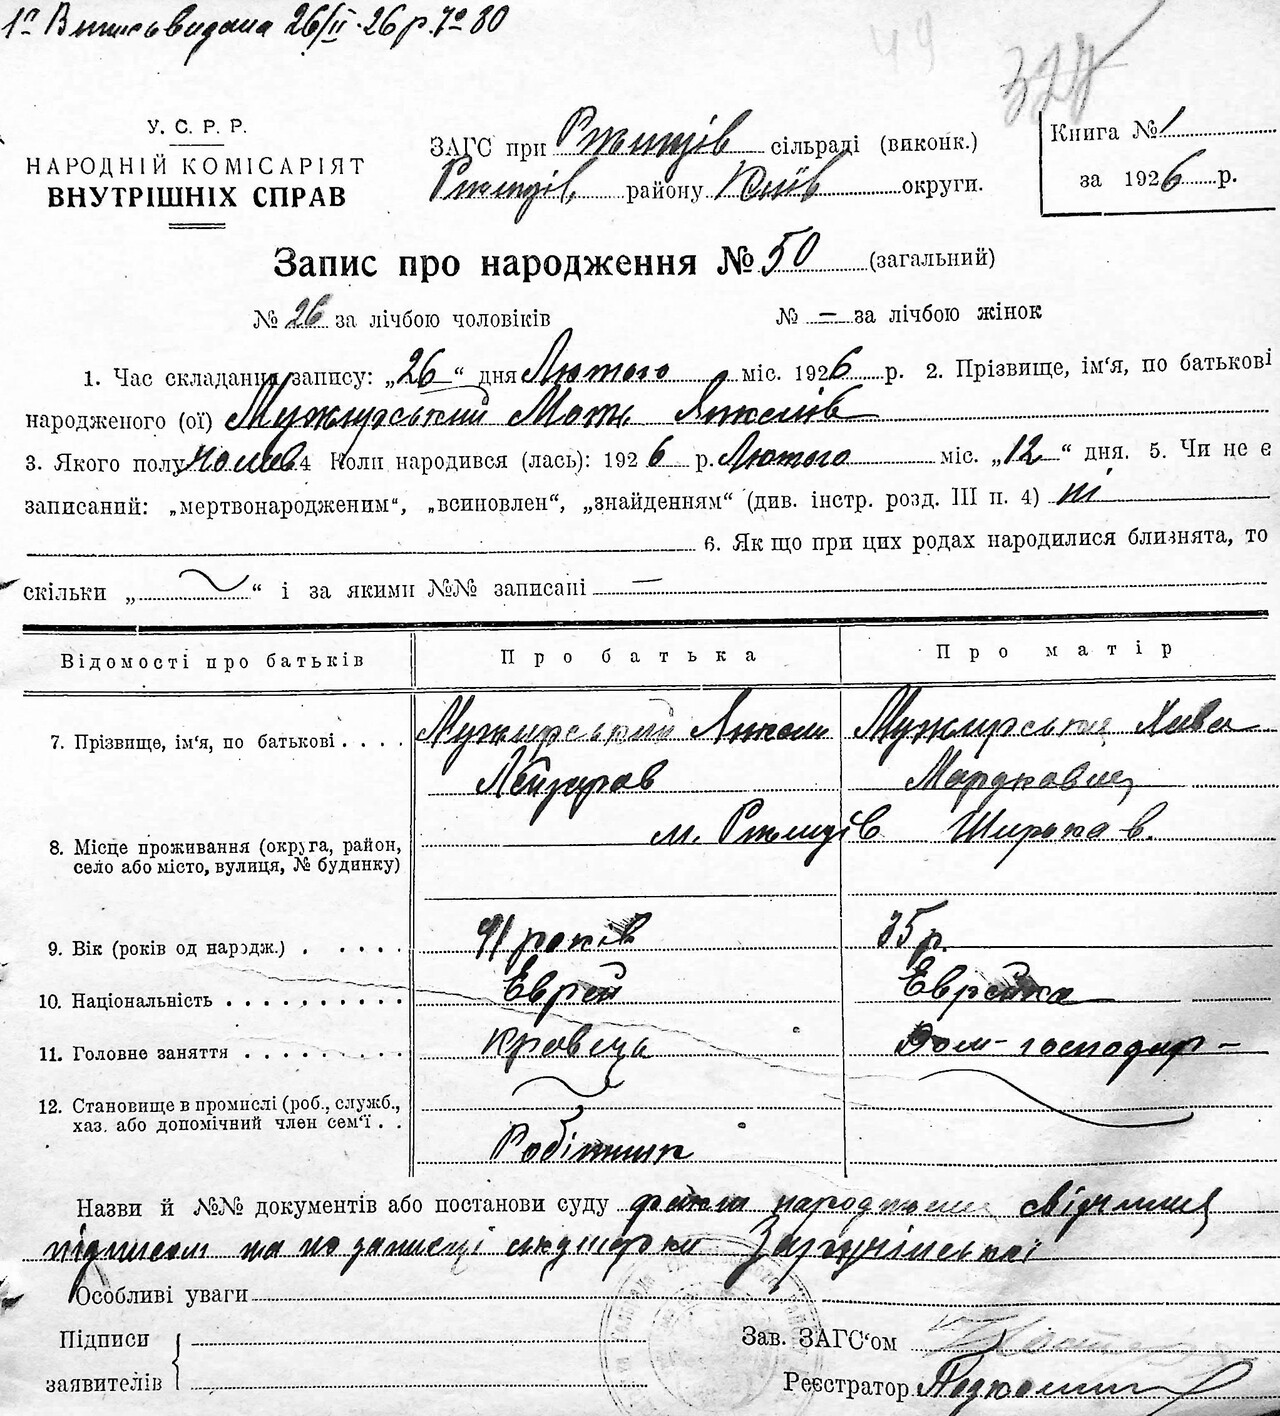 1ª Випись видана 26/II-26 р. № 80
49
У. С. Р. Р.
НАРОДНІЙ КОМІСАРІЯТ
ВНУТРІШНІХ СПРАВ
ЗАГС при Ржищів сільраді (виконк.)
Ржищів. району Київ округи.
Книга № 1
за 1926 р.
Запис про народження № 50 (загальний)
№ 26 за лічбою чоловіків № — за лічбою жінок
1. Час складання запису: „26“ дня Лютого міс. 1926 р. 2. Прізвище, ім‘я, по батькові
народженого (ої) Мужирський Янкелів
3. Якого полу чолов. 4 Коли народився (лась): 1926 р. Лютого міс. „12“ дня. 5. Чи не є
записаний: „мертвонародженим“, „всиновлен“, „знайденням“ (див. інстр. розд. III п. 4) ні
6. Як що при цих родах народилися близнята, то
скільки „ “ і за якими №№ записані —
Відомості про батьків Про батька Про матір
7. Прізвище, ім'я, по батькові . . . . Мужирський Янкель Мужирська Хива
Лейзоров
м. Ржищів Широка в.
8. Місце проживання (округа, район,
село або місто, вулиця, № будинку)
9. Вік (років од народж.) . . . . . 41 років 35 р.
10. Національність . . . . . . . . . . Еврей Еврейка
11. Головне заняття . . . . . . . . . Кравець Дом-господар-
12. Становище в промислі (роб., служб.,
хаз. або допомічний член сем‘ї . .
Робітник
Назви й №№ документів або постанови суду факт народження свідчиця
підписом та по записці акушерки
Особливі уваги
Підписи
заявителів
Зав. ЗАГС‘ом
Реєстратор